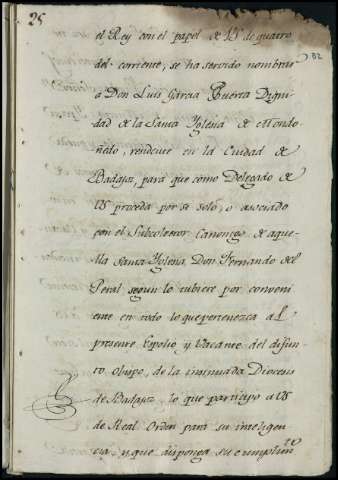 25
132
el Rey con el papel de V.S. de quatro
del corriente, se ha servido nombrar
a Don Luis Garcia Puerta Digni
dad de la Santa Yglesia de Mondo
ñedo, residente en la Ciudad de
Badajoz, para que como Delegado de
VS proceda por sí solo, o asociado
con el Subcolector Canonigo de aque
lla Santa Yglesia Don Fernando del
Peral segun lo tubiere por conveni
ente en todo lo que pertenezca al
presente Espolio y Vacante del difun
to Obispo, de la insinuada Diocesis
de Badajoz, lo que participo a VS
de Real Orden para su inteligen
cia, y que disponga su cumplim
to